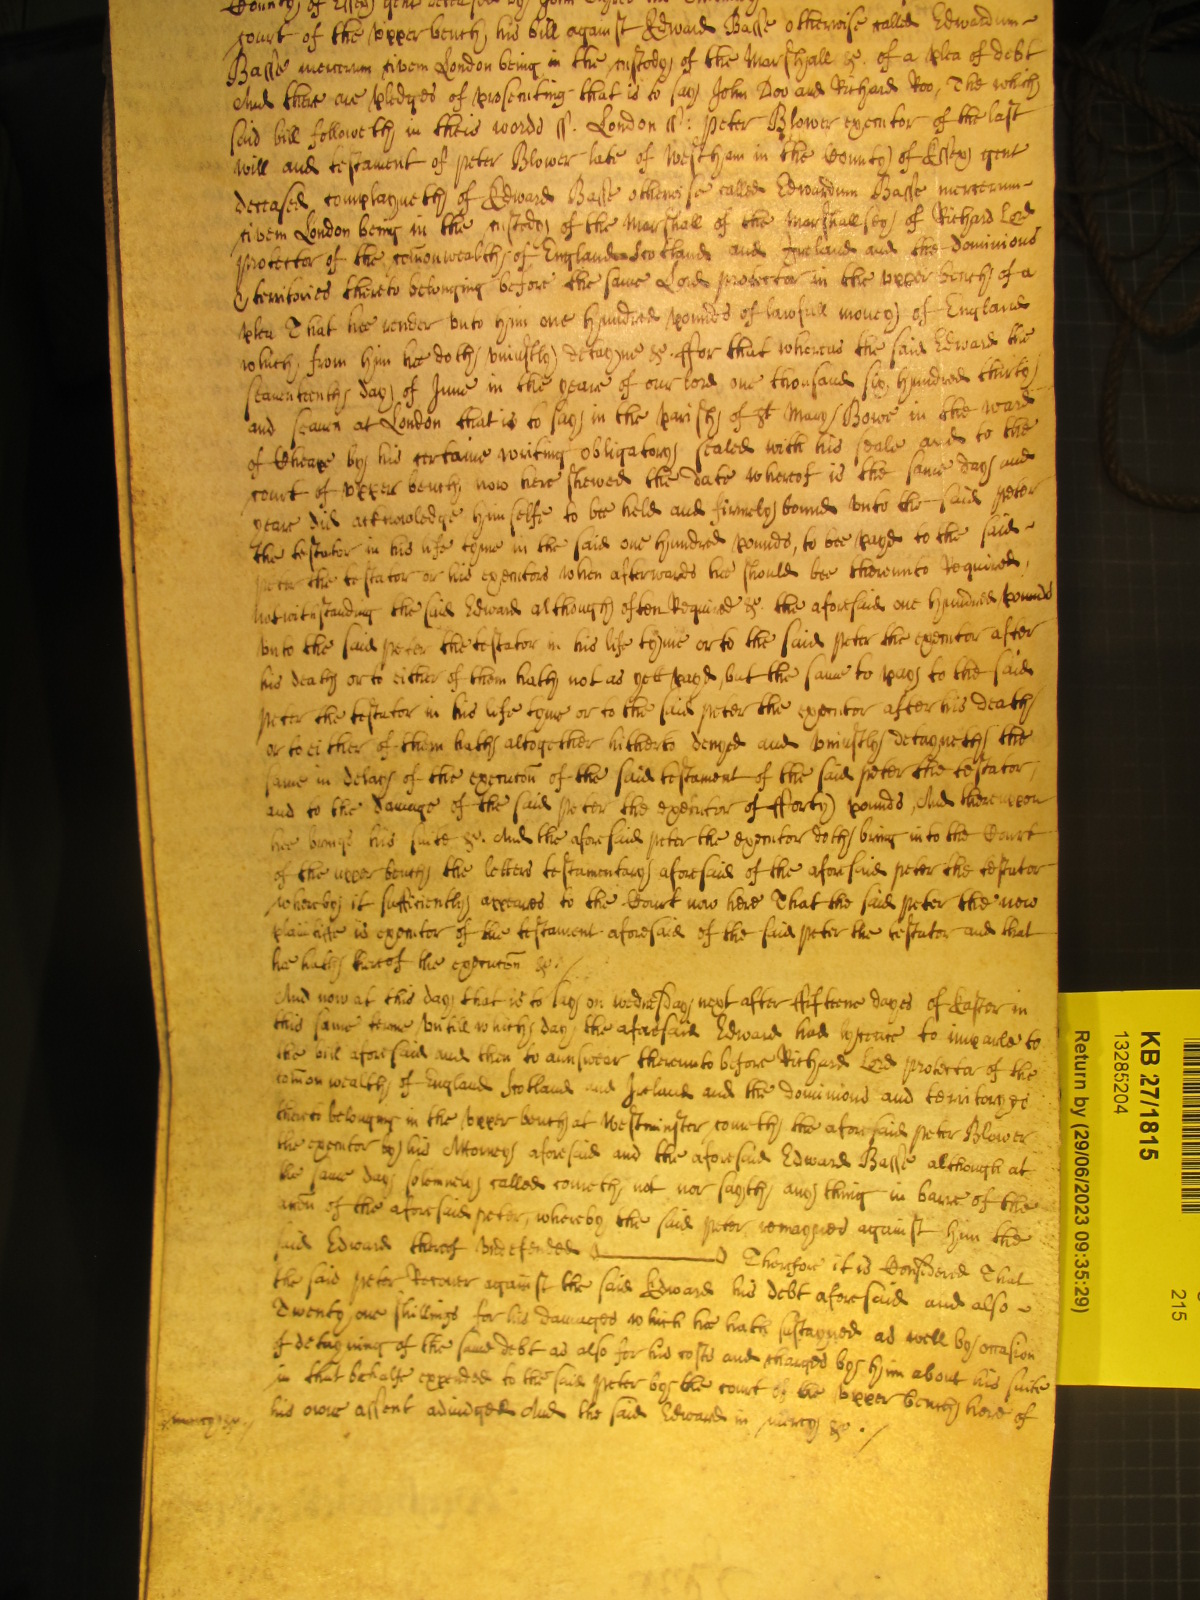 County of Essex gent deceased by John
court of the upper bench his bill against Edward Basse otherwise called Edwardum
Basse mercerum civem London being in the custody of the Marshall &c. of a plea of debt
And there are pledges of prosecuting that is to say John Doo and Richard Roo, The which
said bill followeth in theis words ss. London ss: Peter Blower executor of the last
will and testament of Peter Blower late of Westham in the County of Essex gent
deceased complayneth of Edward Basse otherwise called Edwardum Basse mercerum
civem London being in the custody of the Marshall of the Marshallsey of Richard Lord
Protector of the comonwealth of England Scotland and Ireland and the dominions
& territories thereto belonging before the same Lord protector in the upper bench of a
plea That hee render unto him one hundred pounds of lawfull money of England
which from him hee doth uniustly detayne &c. ffor that whereas the said Edward the
seaventeenth day of June in the yeare of our lord one thousand six hundred thirty
and seaven at London that is to say in the parish of St Mary Bowe in the ward
of Cheape by his certaine writing obligatory sealed with his seale and to the
court of upper bench now here shewed the date whereof is the same day and
yeare did acknowledge himselfe to bee held and firmely bound unto the said Peter
the testator in his life tyme in the said one hundred pounds, to bee payd to the said
Peter the testator or his executors when afterwards hee should bee thereunto Required,
Notwithstanding the said Edward although often Required &c. the aforesaid one hundred pounds
unto the said Peter the testator in his life tyme or to the said Peter the executor after
his death or to either of them hath not as yett payd, but the same to pay to the said
Peter the testator in his life tyme or to the said Peter the executor after his death
or to either of them hath altogether hitherto denyed and uniustly detayneth the
same in delay of the execucon of the said testament of the said Peter the testator,
and to the damage of the said Peter the executor of fforty pounds, And thereupon
hee brings his suite &c. And the aforesaid Peter the executor doth bring into the Court
of the upper bench the letters testamentary aforesaid of the aforesaid Peter the testator
whereby it sufficiently appeares to the Court now here That the said Peter the now
plaintiffe is executor of the testament aforesaid of the said Peter the testator and that
hee hath thereof the execucon &c./
And now at this day that is to say on wednesday next after ffifteene dayes of Easter in
this same terme untill which day the aforesaid Edward had lycence to imparle to
the bill aforesaid and then to aunswear thereunto before Richard Lord Protector of the
comonwealth of England Scotland and Ireland and the dominions and territoryes
thereto belonging in the upper bench at Westminster cometh the aforesaid Peter Blower
the executor by his Attorney aforesaid and the aforesaid Edward Basse although at
the same day solemnely called cometh not nor sayth any thing in barre of the
accon of the aforesaid Peter, whereby the said Peter remaynes against him the
said Edward thereof undefended Therefore it is Considered That
the said Peter Recover against the said Edward his debt aforesaid and also
Twenty one shillings for his damages which hee hath sustayned as well by occasion
of detayning of the same debt as also for his costs and charges by him about his suite
in that behalfe expended to the said Peter by the court of the upper bench here of
his owne assent adiudged And the said Edward in mercy &c./
mercy &c./
KB 27/1815
13285204
Return by (29/06/2023 09:35:29)
215